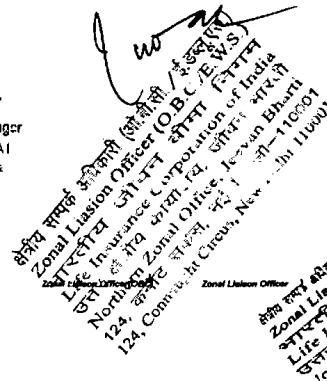 क्षेत्रीय सम्पर्क अधिकारी (ओ.बी.सी. / ई.डब्ल्यू.एस)
Zonal Liasion Officer (O.B.C /E.W.S)
भारतीय जीवन बीमा निगम
Life Insurance Corporation of India
उत्तर क्षेत्रीय कार्यालय, जीवन भारती
Northern Zonal Office, Jeevan Bharti
124, कनॉट सर्कस, नई दिल्ली-110001
124, Connaught Circus, New Delhi 110001
Zonal Liaison Officer(OBC)
Zonal Liaison Officer
Zonal Lia
Life I